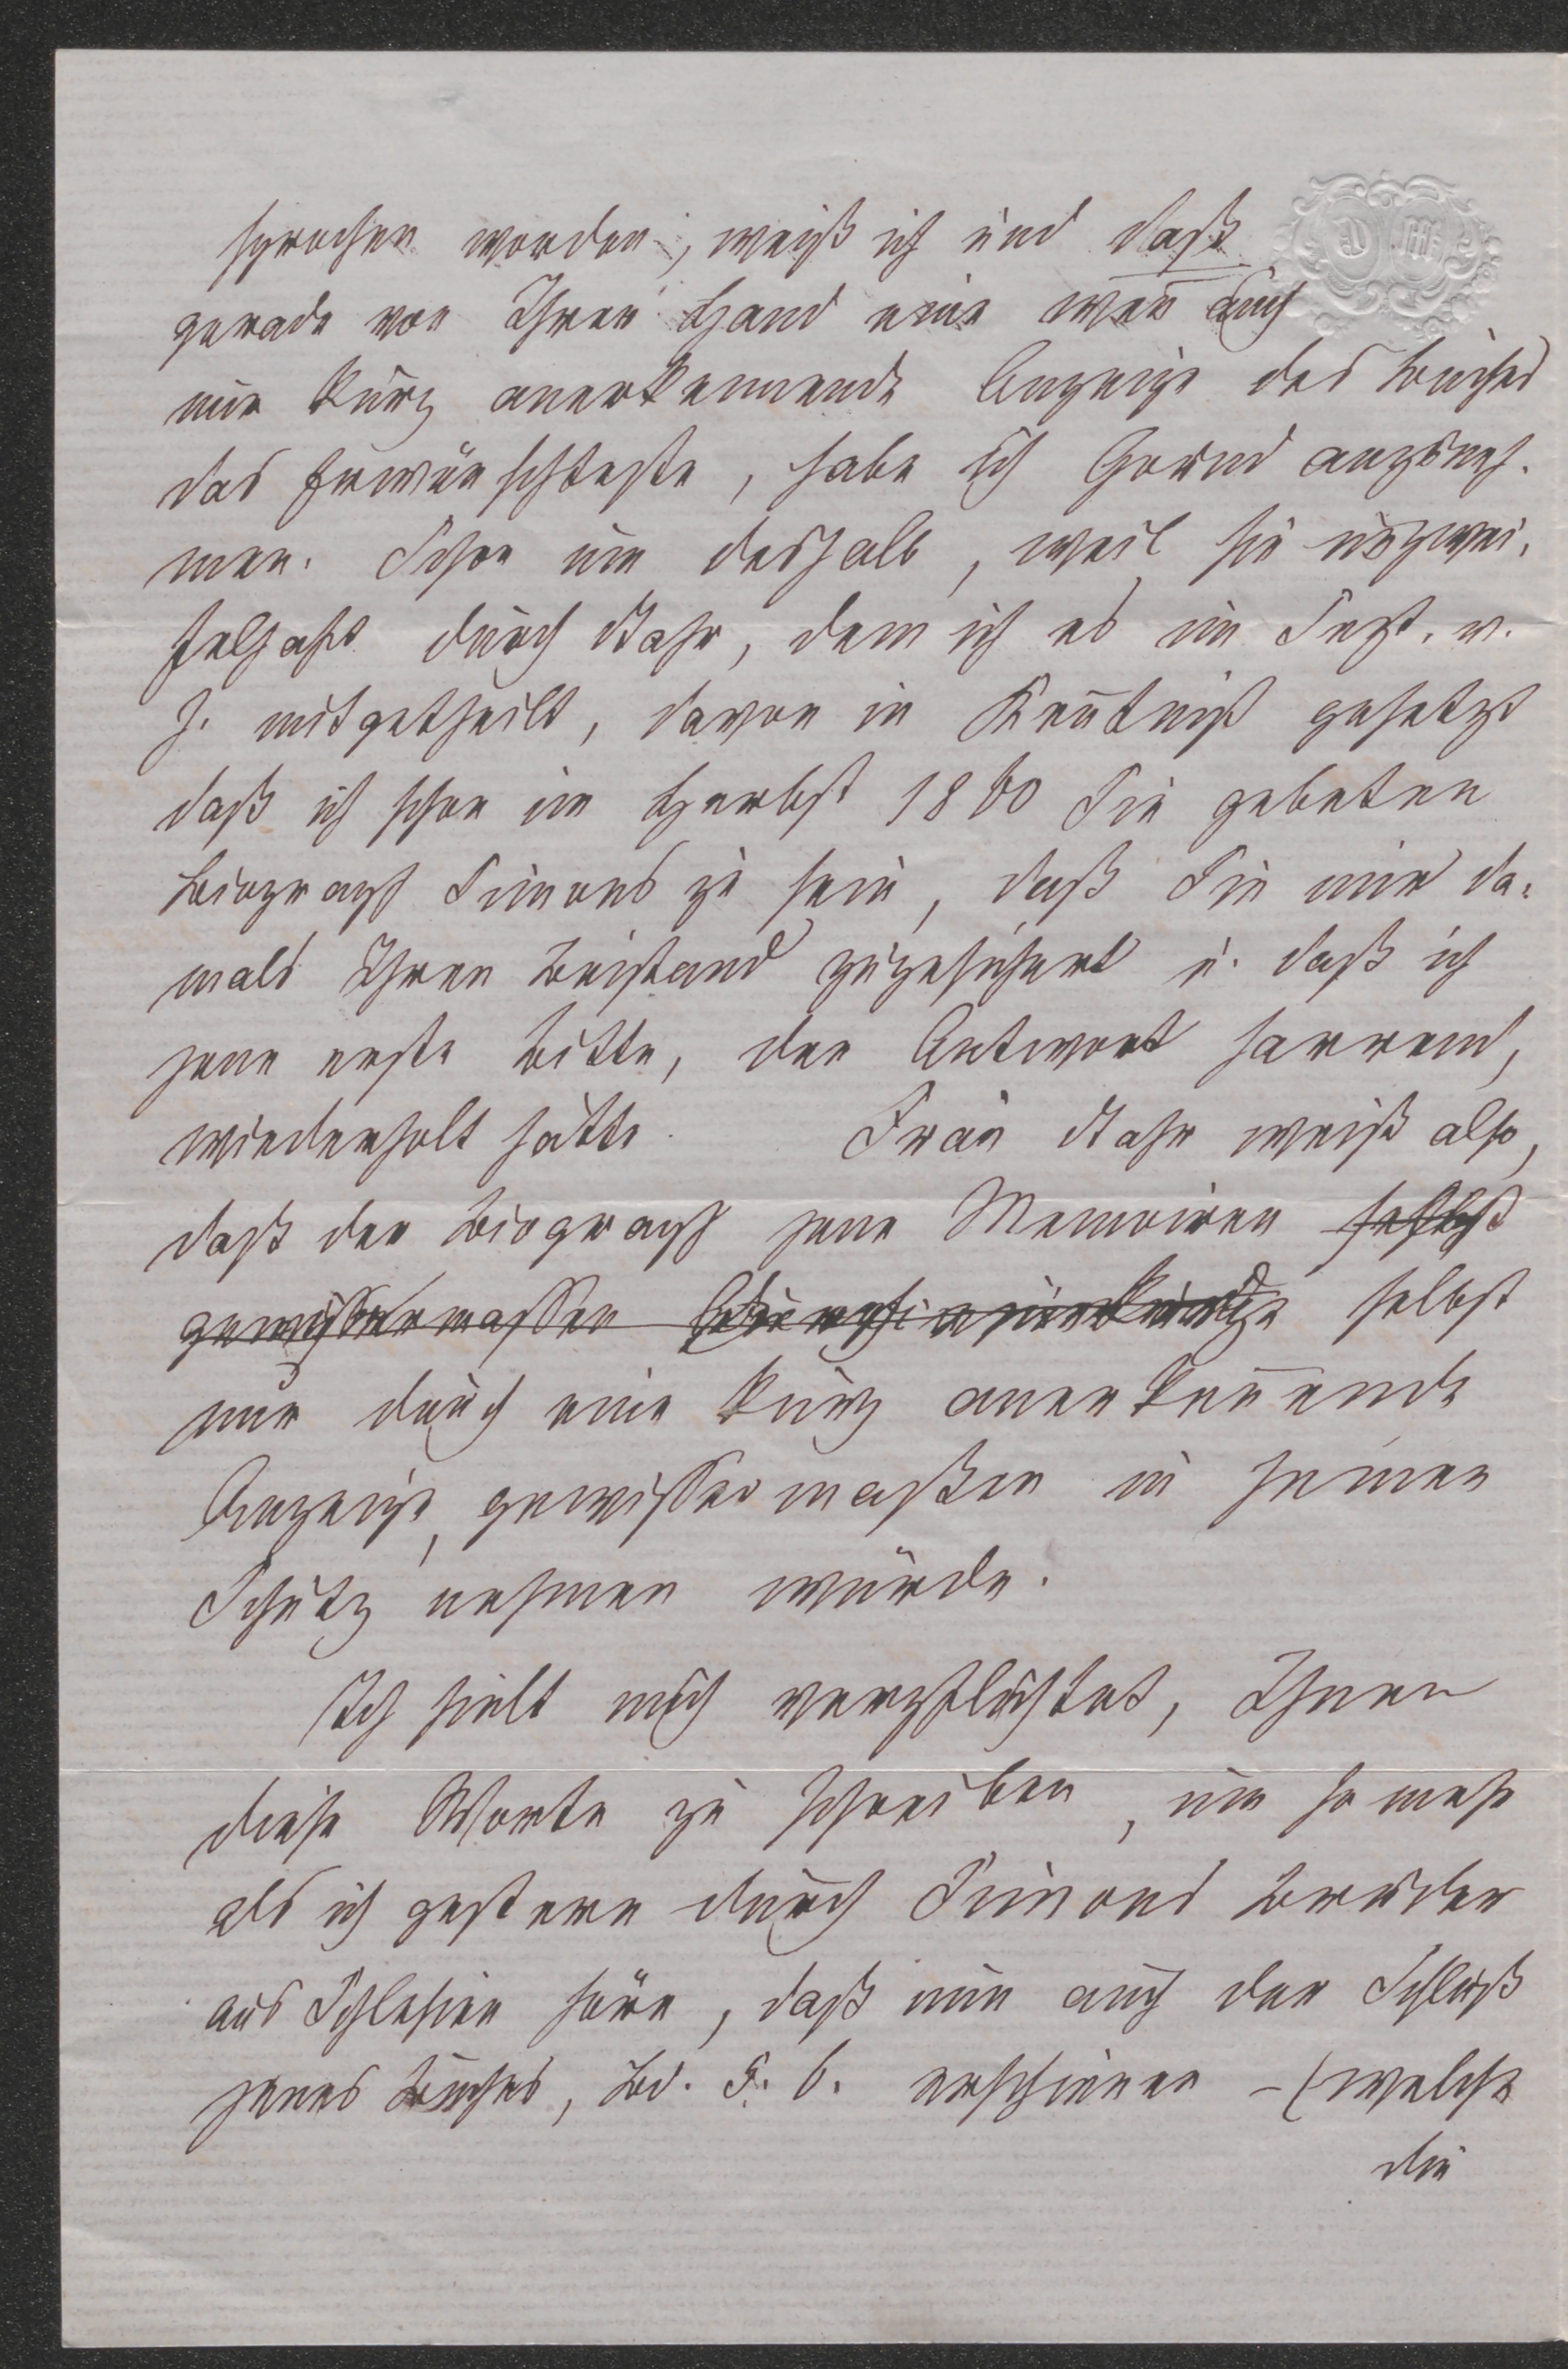 sprochen worden, weiß ich und daß
gerade von Ihrer Hand eine wen̅ auch
nur kurz anerkennende Anzeige des Buches
das Erwünschteste, habe ich Grund anzuneh-
men. Schon um deshalb, weil sie unzwei-
felhaft durch Bahr, dem ich es im Sept. v.
J. mitgetheilt, davon in Ken̅tniß gesetzt
daß ich schon im Herbst 1860 Sie gebeten
Biograph Simons zu sein, daß Sie mir da-
mals Ihren Beistand zugesichert u. daß ich
jene erste Bitte, der Antwort harrend,
wiederholt hätte. Frau Bahr weiß also,
daß der Biograph jene Memoiren selbst
gewissermassen selbst
nur durch eine kurz anerken̅ende
Anzeige, gewissermaßen in seinen
Schutz nehmen würde.
Ich hielt mich verpflichtet, Ihnen
diese Worte zu schreiben, um so mehr
als ich gestern durch Simons Bruder
aus Schlesien höre, daß nun auch der Schluß
jenes Buches, Bd. 5. 6. erschienen – (welche
die